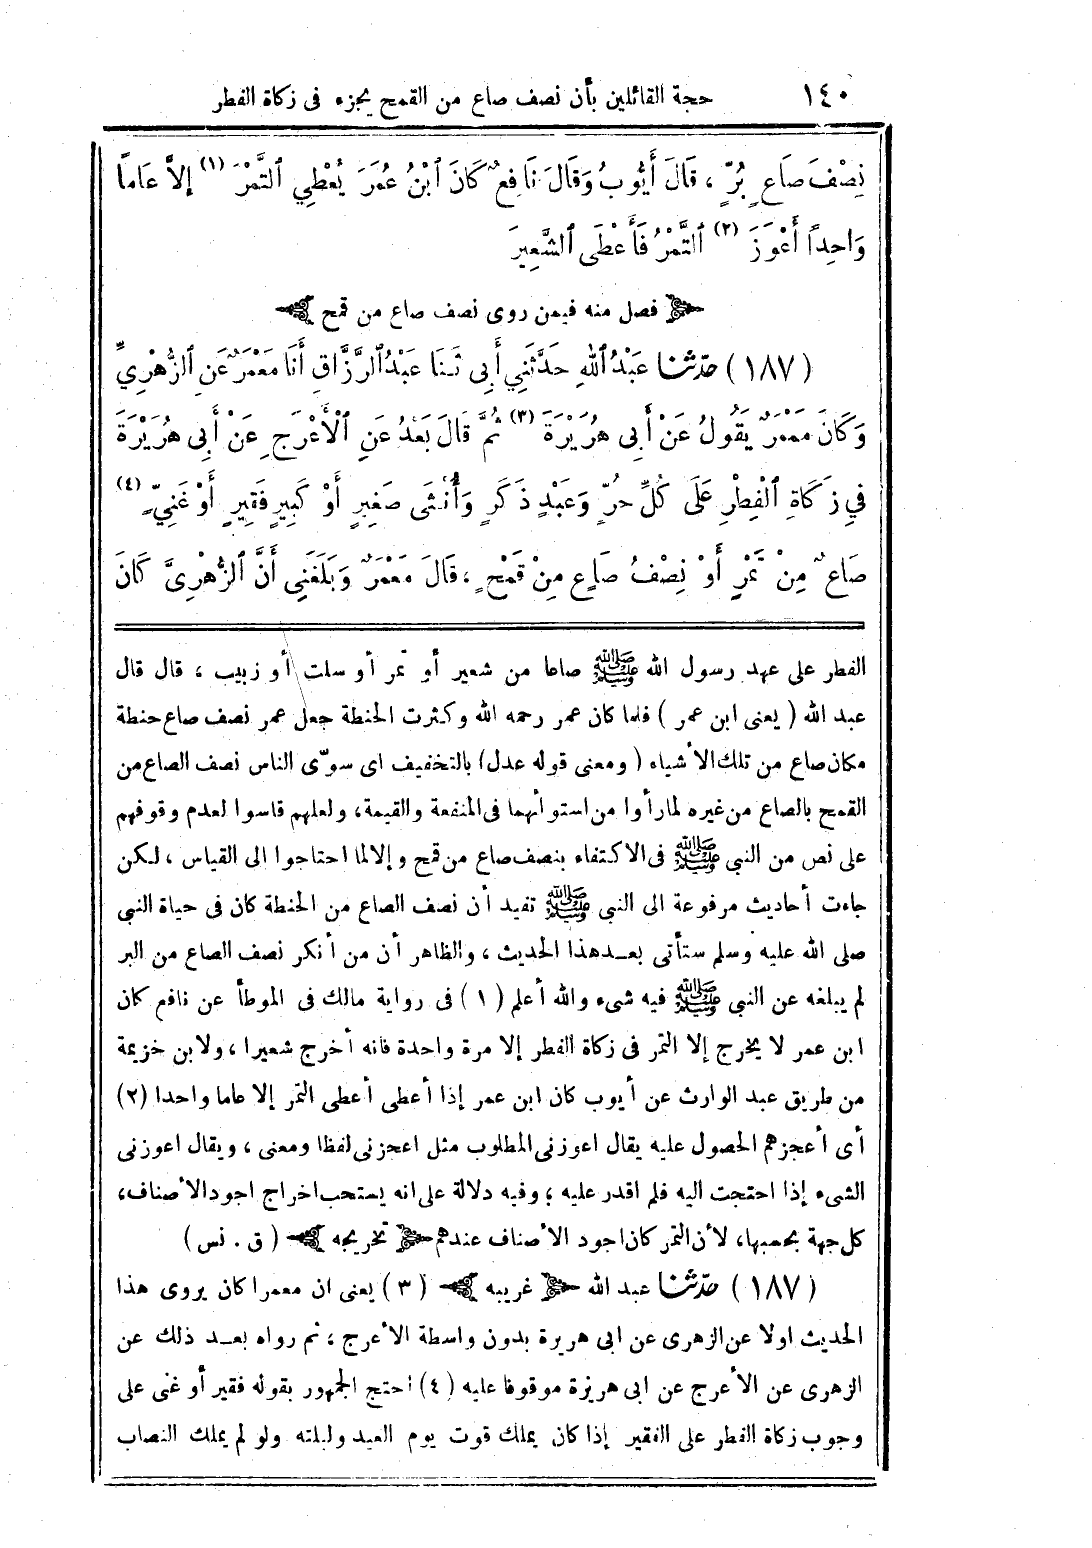 ١٤٠ حجة القائلين بأن نصف صاع من القمح يجزء فى زكاة الفطر
نِصْفَ صَاعٍ بُرٍّ ، قَالَ أَيُّوبُ وَقَالَ نَافِعٌ كَانَ ٱبْنُ عُمَرَ يُعْطِي ٱلتَّمْرَ (١) إِلاَّ عَامًا
وَاحِدًا أَعْوَزَ (٢) ٱلتَّمْرُ فَأَعْطَى ٱلشَّعِيرَ
فصل منه فيمن روى نصف صاع من قمح
(١٨٧) حدّثنا عَبْدُ ٱللهِ حَدَّثَنِي أَبِى ثَنَا عَبْدُ ٱلرَّزَّاقِ أَنَا مَعْمَرٌ عَنِ ٱلزُّهْرِيِّ
وَكَانَ مَعْمَرٌ يَقُولُ عَنْ أَبِى هُرَيْرَةَ (٣) ثُمَّ قَالَ بَعْدُ عَنِ ٱلْأَعْرَجِ عَنْ أَبِى هُرَيْرَةَ
فِي زَكَاةِ ٱلْفِطْرِ عَلَى كُلِّ حُرٍّ وَعَبْدٍ ذَكَرٍ وَأُنْثَى صَغِيرٍ أَوْ كَبِيرٍ فَقِيرٍ أَوْ غَنِيٍّ (٤)
صَاعٌ مِنْ تَمْرٍ أَوْ نِصْفُ صَاعٍ مِنْ قَمْحٍ ، قَالَ مَعْمَرٌ وَبَلَغَنِى أَنَّ ٱلزُّهْرِىَّ كَانَ
الفطر على عهد رسول الله ﷺ صاعا من شعير أو تمر أو سلت أو زبيب ، قال قال
عبد الله ( يعنى ابن عمر ) فلما كان عمر رحمه الله وكثرت الحنطة جعل عمر نصف صاع حنطة
مكان صاع من تلك الأشياء ( ومعنى قوله عدل) بالتخفيف اى سوّى الناس نصف الصاع من
القمح بالصاع من غيره لما رأوا من استوائهما فى المنفعة والقيمة، ولعلهم قاسوا لعدم وقوفهم
على نص من النبى ﷺ فى الاكتفاء بنصف صاع من قمح وإلا لما احتاجوا الى القياس ، لكن
جاءت أحاديث مرفوعة الى النبى ﷺ تفيد أن نصف الصاع من الحنطة كان فى حياة النبى
صلى الله عليه وسلم ستأتى بعد هذا الحديث ، والظاهر أن من أنكر نصف الصاع من البر
لم يبلغه عن النبى ﷺ فيه شىء والله أعلم (١) فى رواية مالك فى الموطأ عن نافع كان
ابن عمر لا يخرج إلا التمر فى زكاة الفطر إلا مرة واحدة فانه أخرج شعيرا ، ولابن خزيمة
من طريق عبد الوارث عن أيوب كان ابن عمر إذا أعطى أعطى التمر إلا عاما واحدا (٢)
أى أعجزهم الحصول عليه يقال اعوزنى المطلوب مثل اعجزنى لفظا ومعنى ، ويقال اعوزنى
الشىء إذا احتجت اليه فلم اقدر عليه ؛ وفيه دلالة على انه يستحب اخراج اجود الأصناف،
كل جهة بحسبها، لأن التمر كان اجود الأصناف عندهم تخريجه ( ق . نس )
(١٨٧) حدّثنا عبد الله غريبه (٣) يعنى ان معمرا كان يروى هذا
الحديث اولا عن الزهرى عن ابى هريرة بدون واسطة الأعرج ؛ ثم رواه بعد ذلك عن
الزهرى عن الأعرج عن ابى هريرة موقوفا عليه (٤) احتج الجمهور بقوله فقير أو غنى على
وجوب زكاة الفطر على الفقير إذا كان يملك قوت يوم العيد وليلته ولو لم يملك النصاب